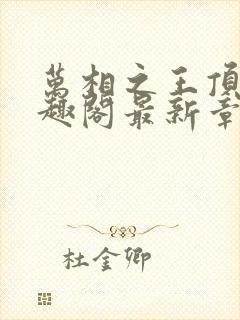 萬相之王頂
趣閣最新章
杜金卿